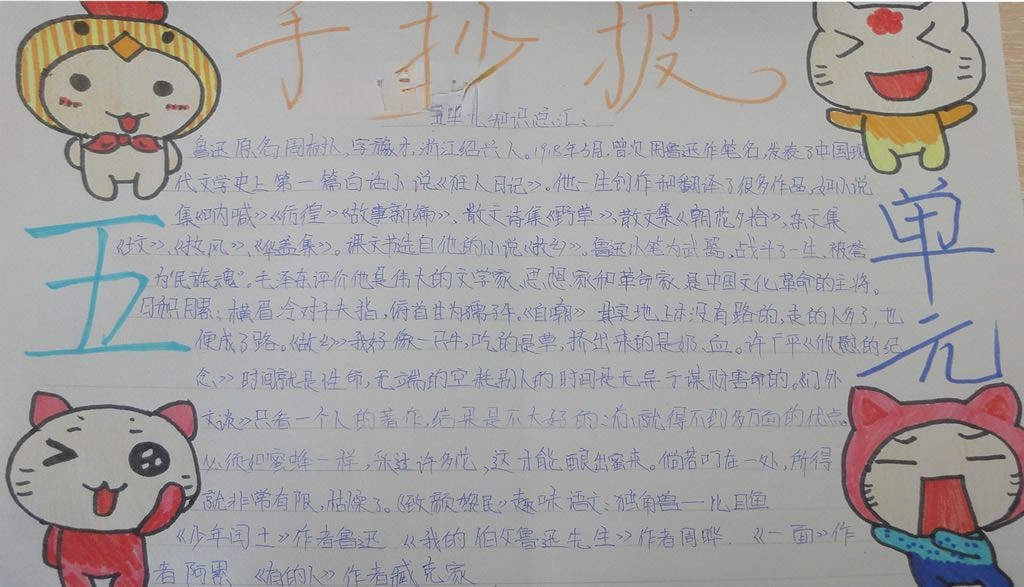 手抄报
五单元知识总汇:
鲁迅原名周树人,字豫才,浙江绍兴人。1918年5月,首次用鲁迅作笔名,发表了中国现
代文学史上第一篇白话小说《狂人日记》。他一生创作和翻译了很多作品,如小说
集《呐喊》《彷徨》《故事新编》、散文诗集《野草》、散文集《朝花夕拾》,杂文集
《坟》、《热风》、《华盖集》。课文节选自他的小说《故乡》。鲁迅以笔为武器,战斗了一生,被誉
为“民族魂”。毛泽东评价他是伟大的文学家、思想家和革命家,是中国文化革命的主将。
日积月累:横眉冷对千夫指,俯首甘为孺子牛。《自嘲》其实地上本没有路的,走的人多了,也
便成了路。《故乡》我好像一只牛,吃的是草,挤出来的是奶、血。许广平《欣慰的纪
念》时间就是性命,无端的空耗别人的时间是无异于谋财害命的。《门外
文谈》只看一个人的著作,结果是不大好的:你就得不到多方面的优点。
必须如蜜蜂一样,采过许多花,这才能酿出蜜来。倘若叮在一处,所得
就非常有限,枯燥了。《致颜黎民》趣味语文:独角兽——比目鱼
《少年闰土》作者鲁迅 《我的伯父鲁迅先生》作者周晔 《一面》作
者阿累 《有的人》作者臧克家
五
单元